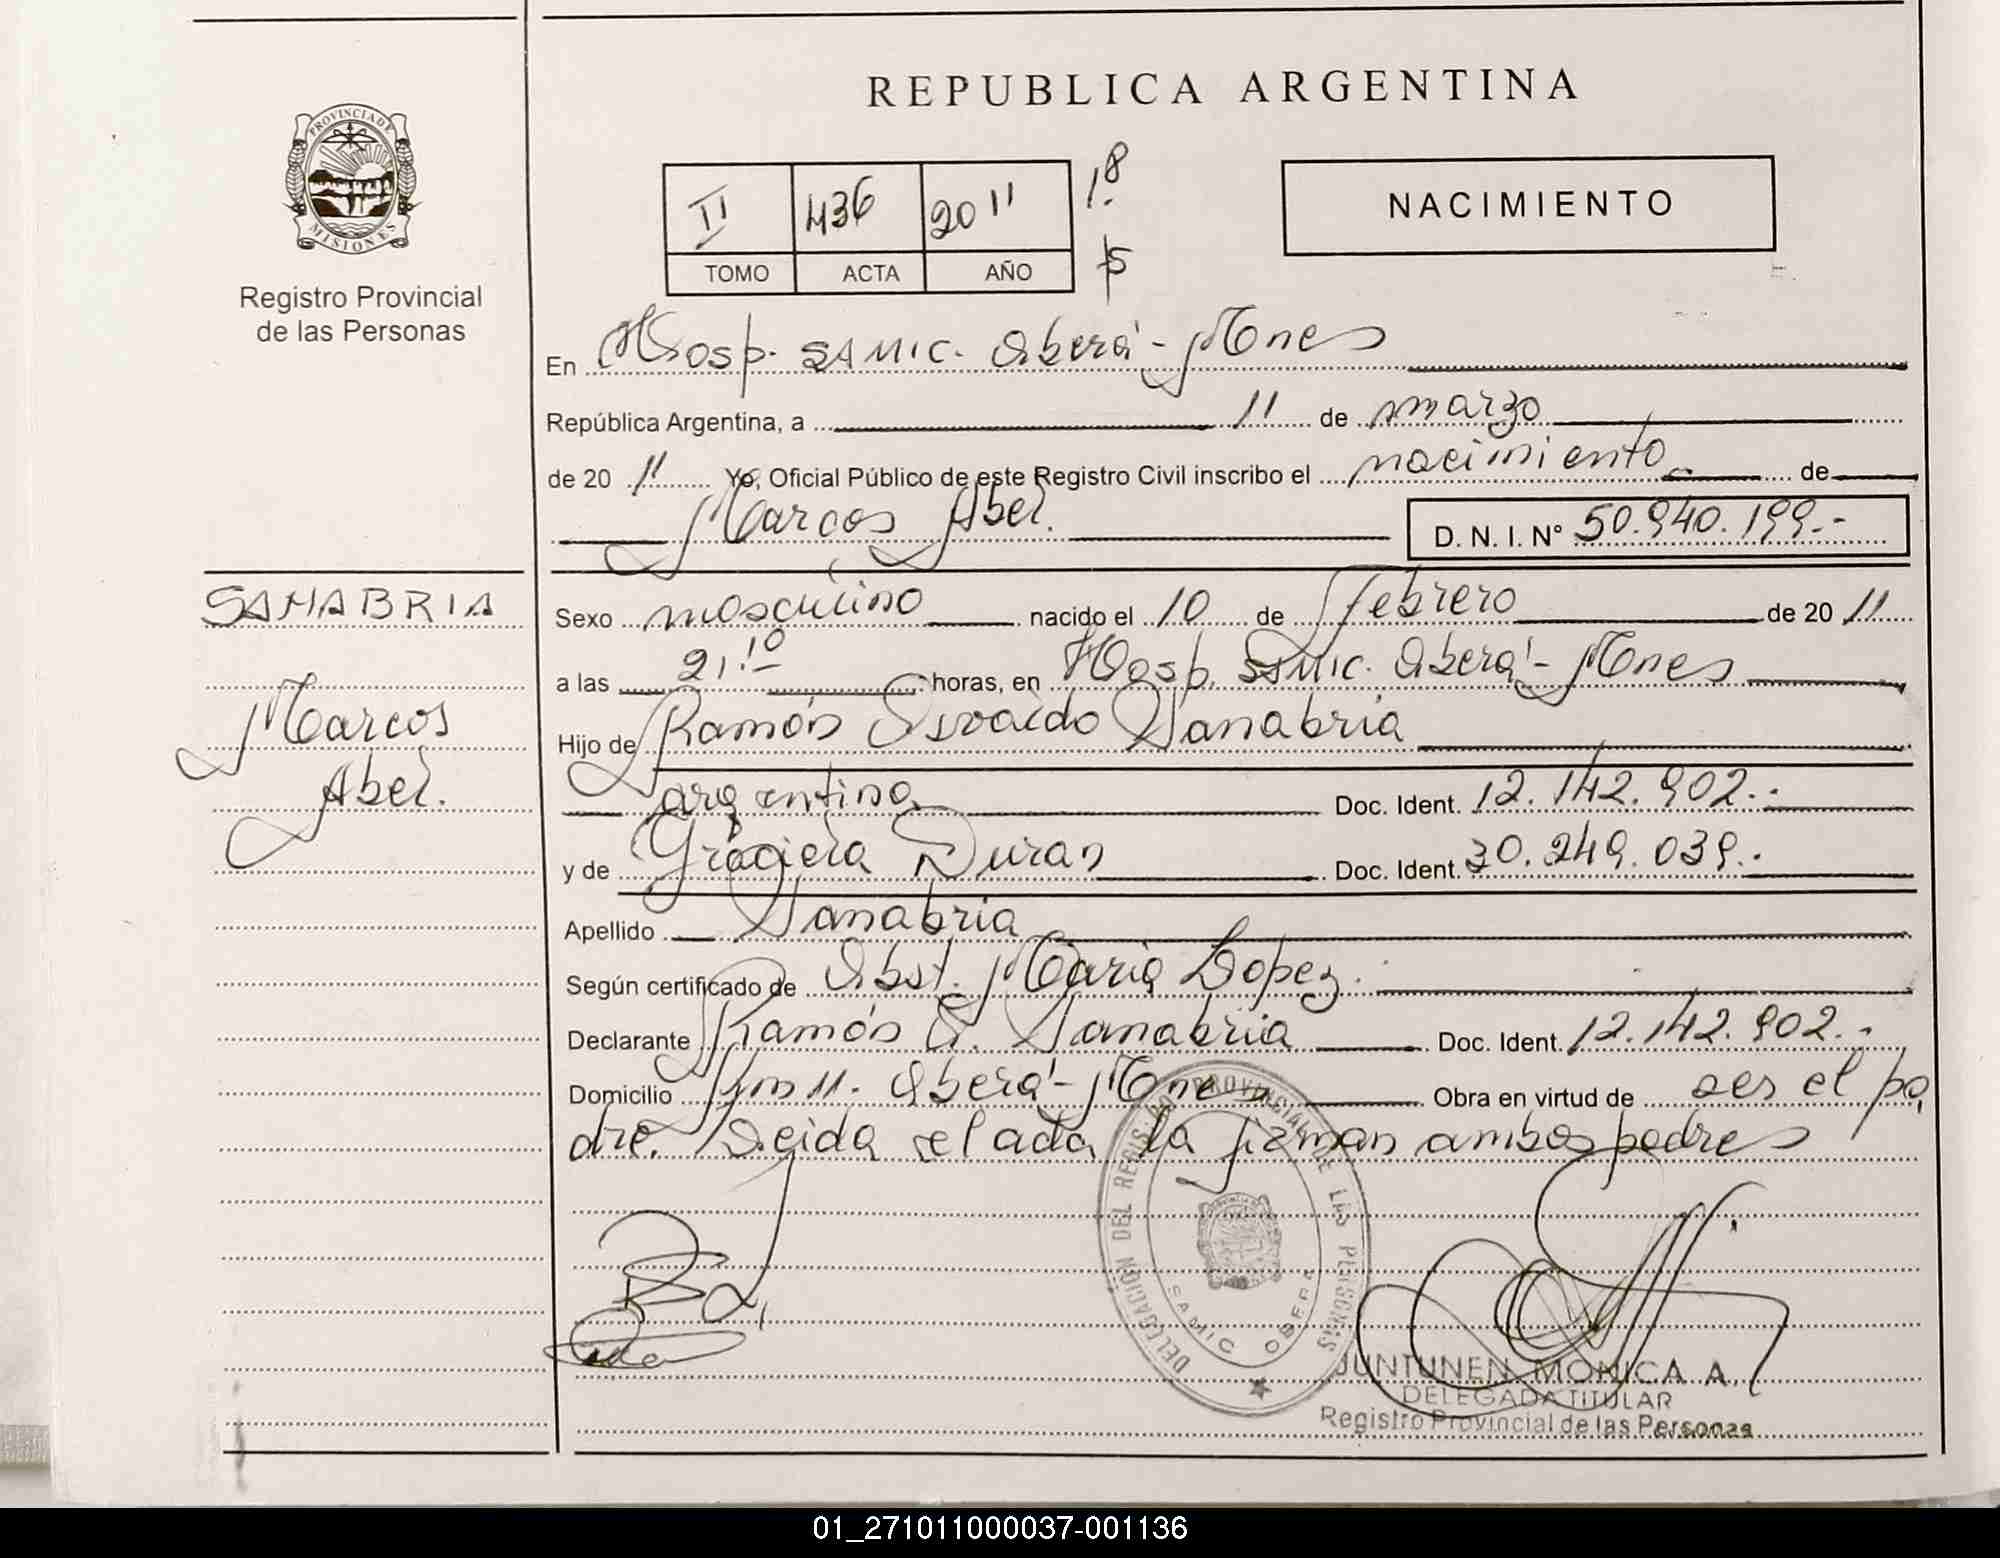 REPUBLICA ARGENTINA
PROVINCIA DE MISIONES
Registro Provincial
de las Personas
II 436 2011 18
TOMO ACTA AÑO
NACIMIENTO
En Hosp. SAMIC. Oberá - Mnes
República Argentina, a 11 de marzo
de 20 11 Yo, Oficial Público de este Registro Civil inscribo el nacimiento de
Marcos Abel. D. N. I. Nº 50.940.199.-
SANABRIA
Marcos
Abel.
Sexo masculino nacido el 10 de febrero de 20 11
a las 21,10 horas, en Hosp. SAMIC. Oberá - Mnes
Hijo de Ramón Osvaldo Sanabria
argentino Doc. Ident. 12.142.902.-
y de Graciela Duran Doc. Ident. 30.249.039.-
Apellido Sanabria
Según certificado de Obst. Maria Lopez.
Declarante Ramón O. Sanabria Doc. Ident. 12.142.902.-
Domicilio Km 11. Oberá - Mnes Obra en virtud de ser el pa
dre. Leida el acta la firman ambos padres
DELEGACION DEL REGISTRO PROVINCIAL DE LAS PERSONAS
SAMIC OBERA
JUNTUNEN MONICA A.
DELEGADA TITULAR
Registro Provincial de las Personas
01_271011000037-001136